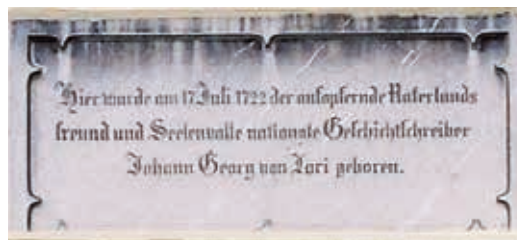 Hier wurde am 17. Juli 1722 der aufopfernde Vaterlands
freund und Seelenvolle nationale Geschichtschreiber
Johann Georg von Lori geboren.